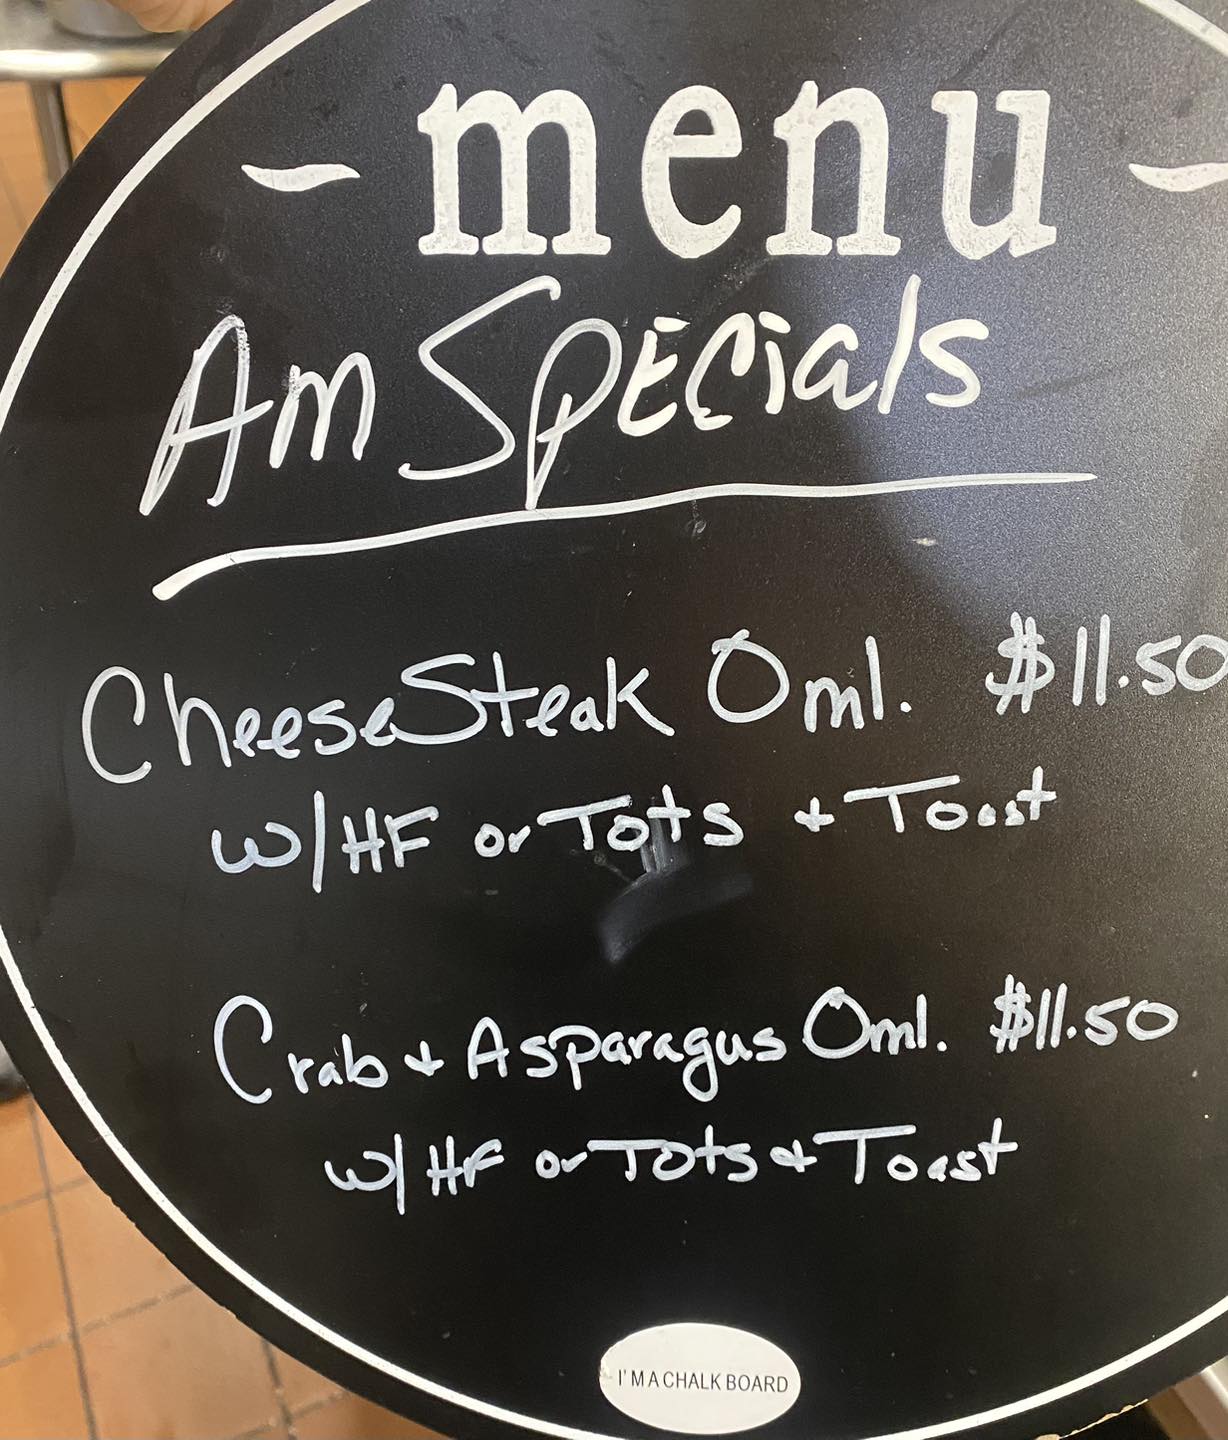 menu
Am Specials
CheeseSteak Oml. $11.50
w/HF or Tots + Toast
Crab + Asparagus Oml. $11.50
w/HF or Tots + Toast
I'M A CHALK BOARD